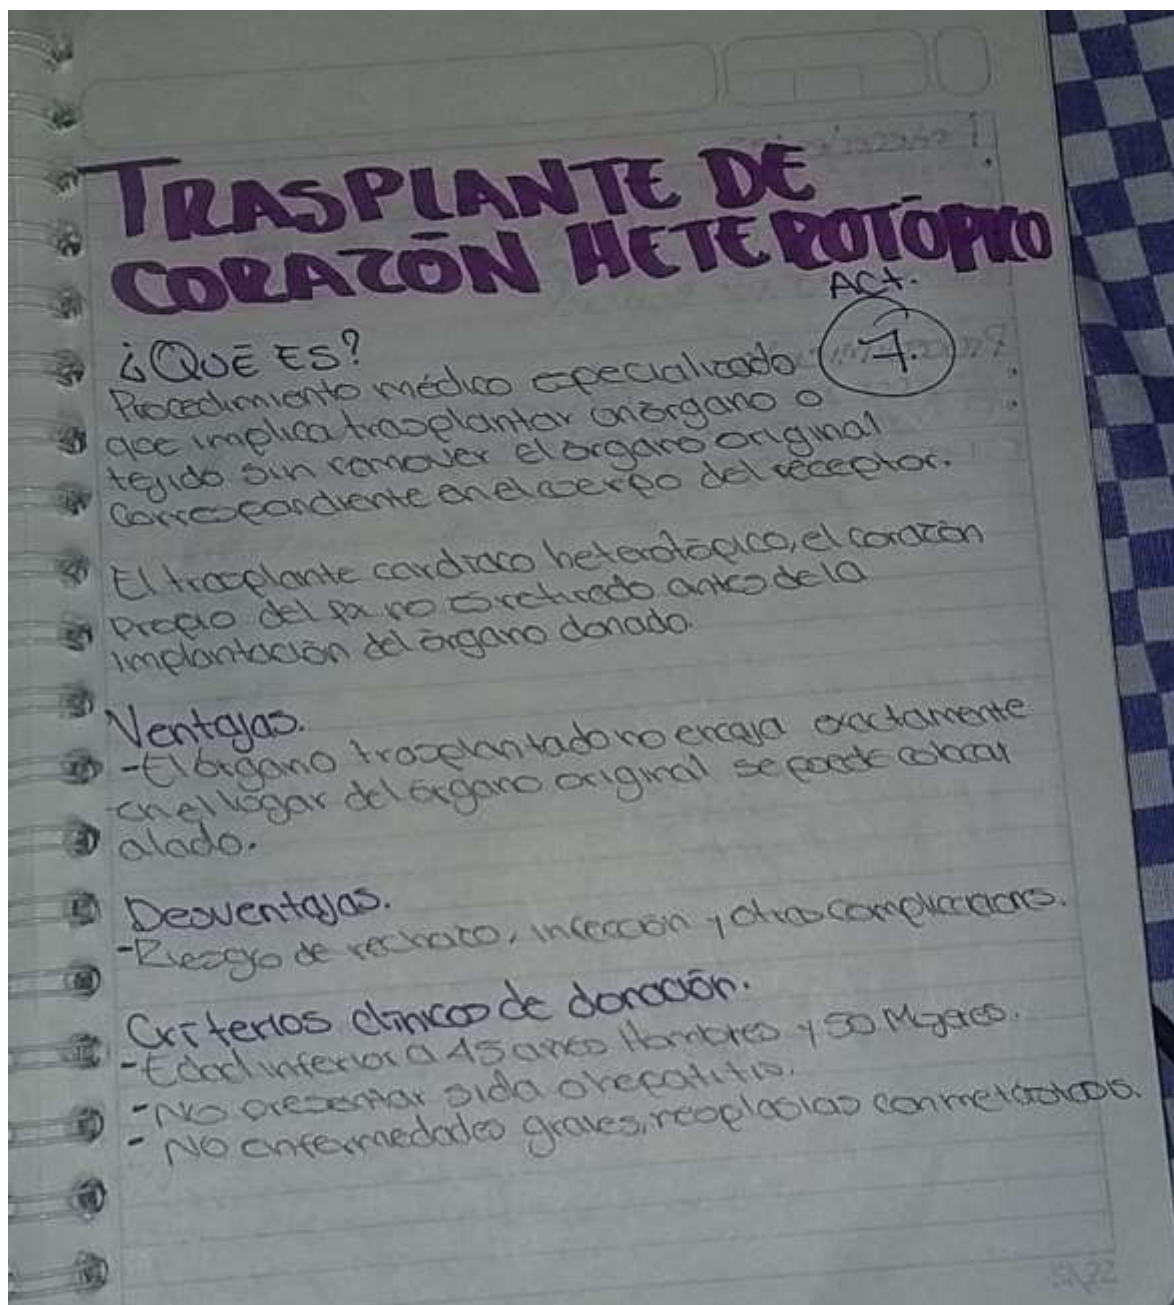 TRASPLANTE DE
CORAZÓN HETEROTÓPICO
Act.
7.
¿QUÉ ES?
Procedimiento médico especializado
que implica trasplantar un órgano o
tejido sin remover el órgano original
correspondiente en el cuerpo del receptor.
El trasplante cardiaco heterotópico, el corazón
propio del pa no es retirado antes de la
implantación del órgano donado.
Ventajas.
-El órgano trasplantado no encaja exactamente
en el lugar del órgano original se puede colocar
alado.
Desventajas.
-Riesgo de rechazo, infección y otras complicaciones.
Criterios clínicos de donación.
-Edad inferior a 45 años Hombres y 50 Mujeres.
-No presentar sida o hepatitis.
-NO enfermedades graves, neoplasias con metástasis.